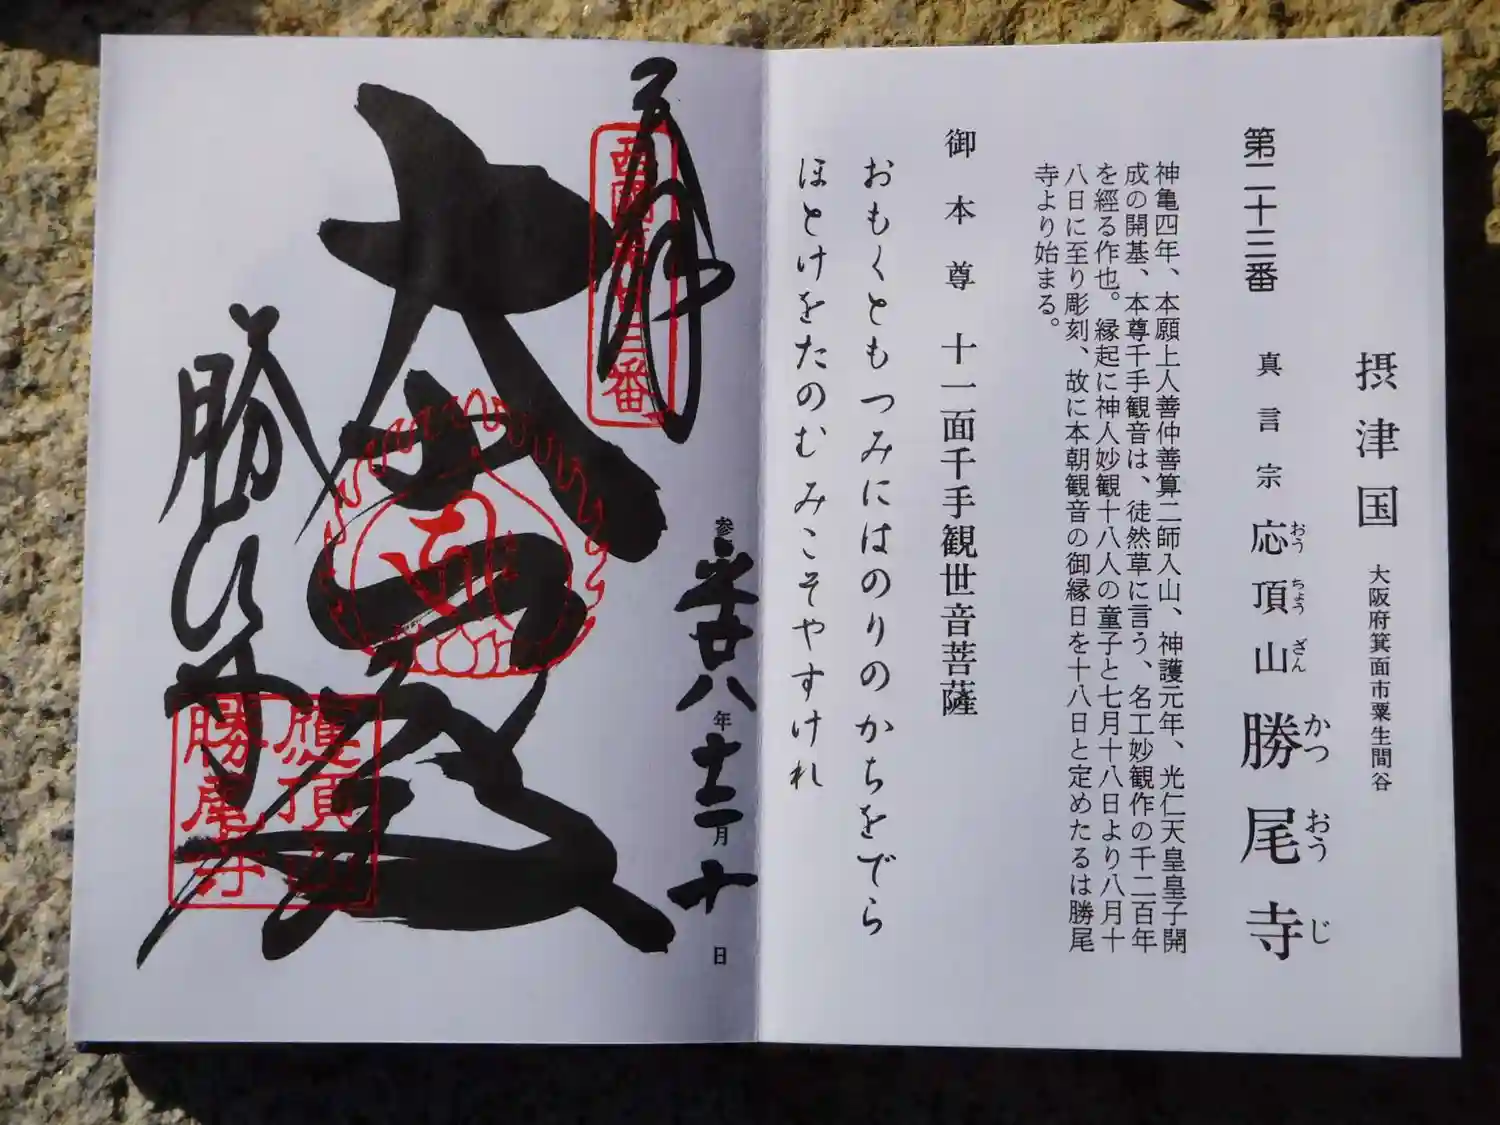 摂津国 大阪府箕面市粟生間谷
第二十三番 真言宗 応頂山勝尾寺
おうちょうざん かつおうじ
神亀四年、本願上人善仲善算二師入山、神護元年、光仁天皇皇子開
成の開基、本尊千手観音は、徒然草に言う、名工妙観作の千二百年
を經る作也。縁起に神人妙観十八人の童子と七月十八日より八月十
八日に至り彫刻、故に本朝観音の御縁日を十八日と定めたるは勝尾
寺より始まる。
御本尊 十一面千手観世音菩薩
おもくともつみにはのりのかちをでら
ほとけをたのむみこそやすけれ
奉拝
西国第廿三番
平廿八年十二月十日
大悲殿
勝尾寺
應頂山
勝尾寺